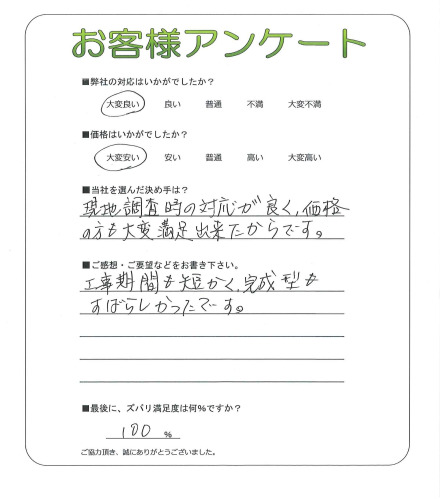 お客様アンケート
■弊社の対応はいかがでしたか？
大変良い 良い 普通 不満 大変不満
■価格はいかがでしたか？
大変安い 安い 普通 高い 大変高い
■当社を選んだ決め手は？
現地調査時の対応が良く、価格
の方も大変満足出来たからです。
■ご感想・ご要望などをお書き下さい。
工事期間も短かく、完成型も
すばらしかったです。
■最後に、ズバリ満足度は何％ですか？
100 ％
ご協力頂き、誠にありがとうございました。